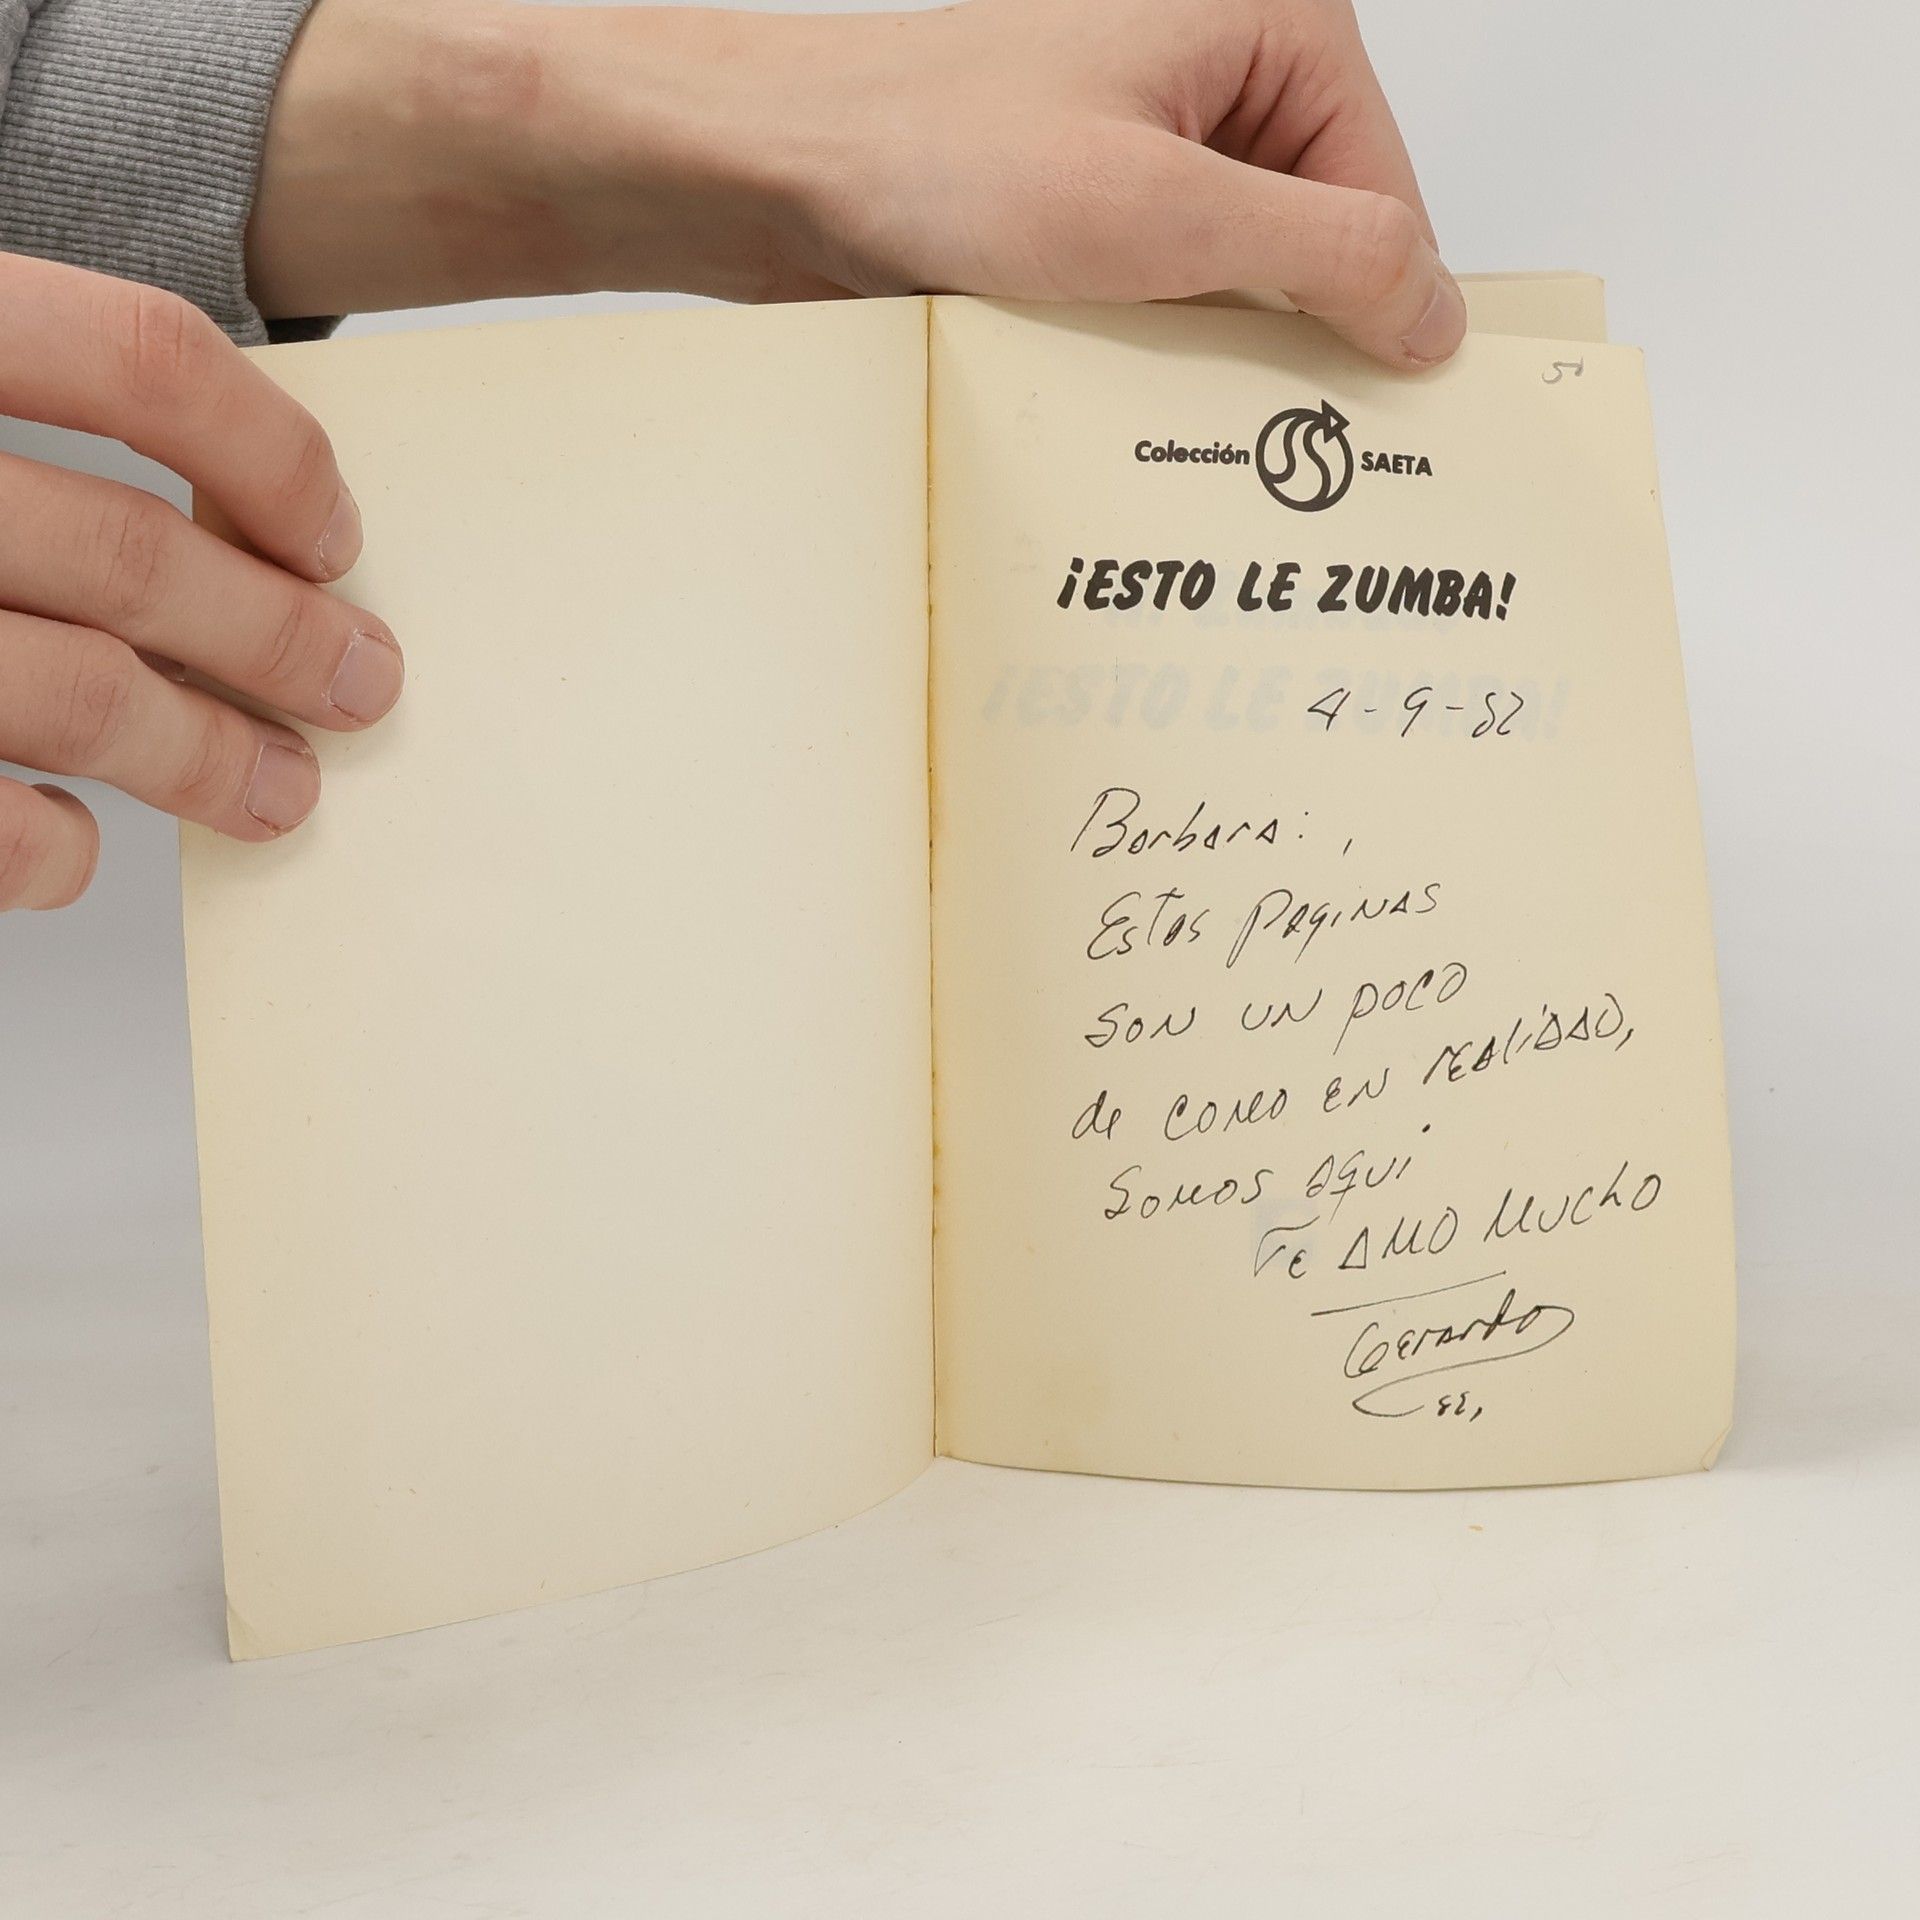 5
Colección SAETA
¡ESTO LE ZUMBA!
4-9-82
Barbara:,
Estas paginas
son un poco
de como en realidad,
somos aqui.
Te amo mucho
Gerardo
82,